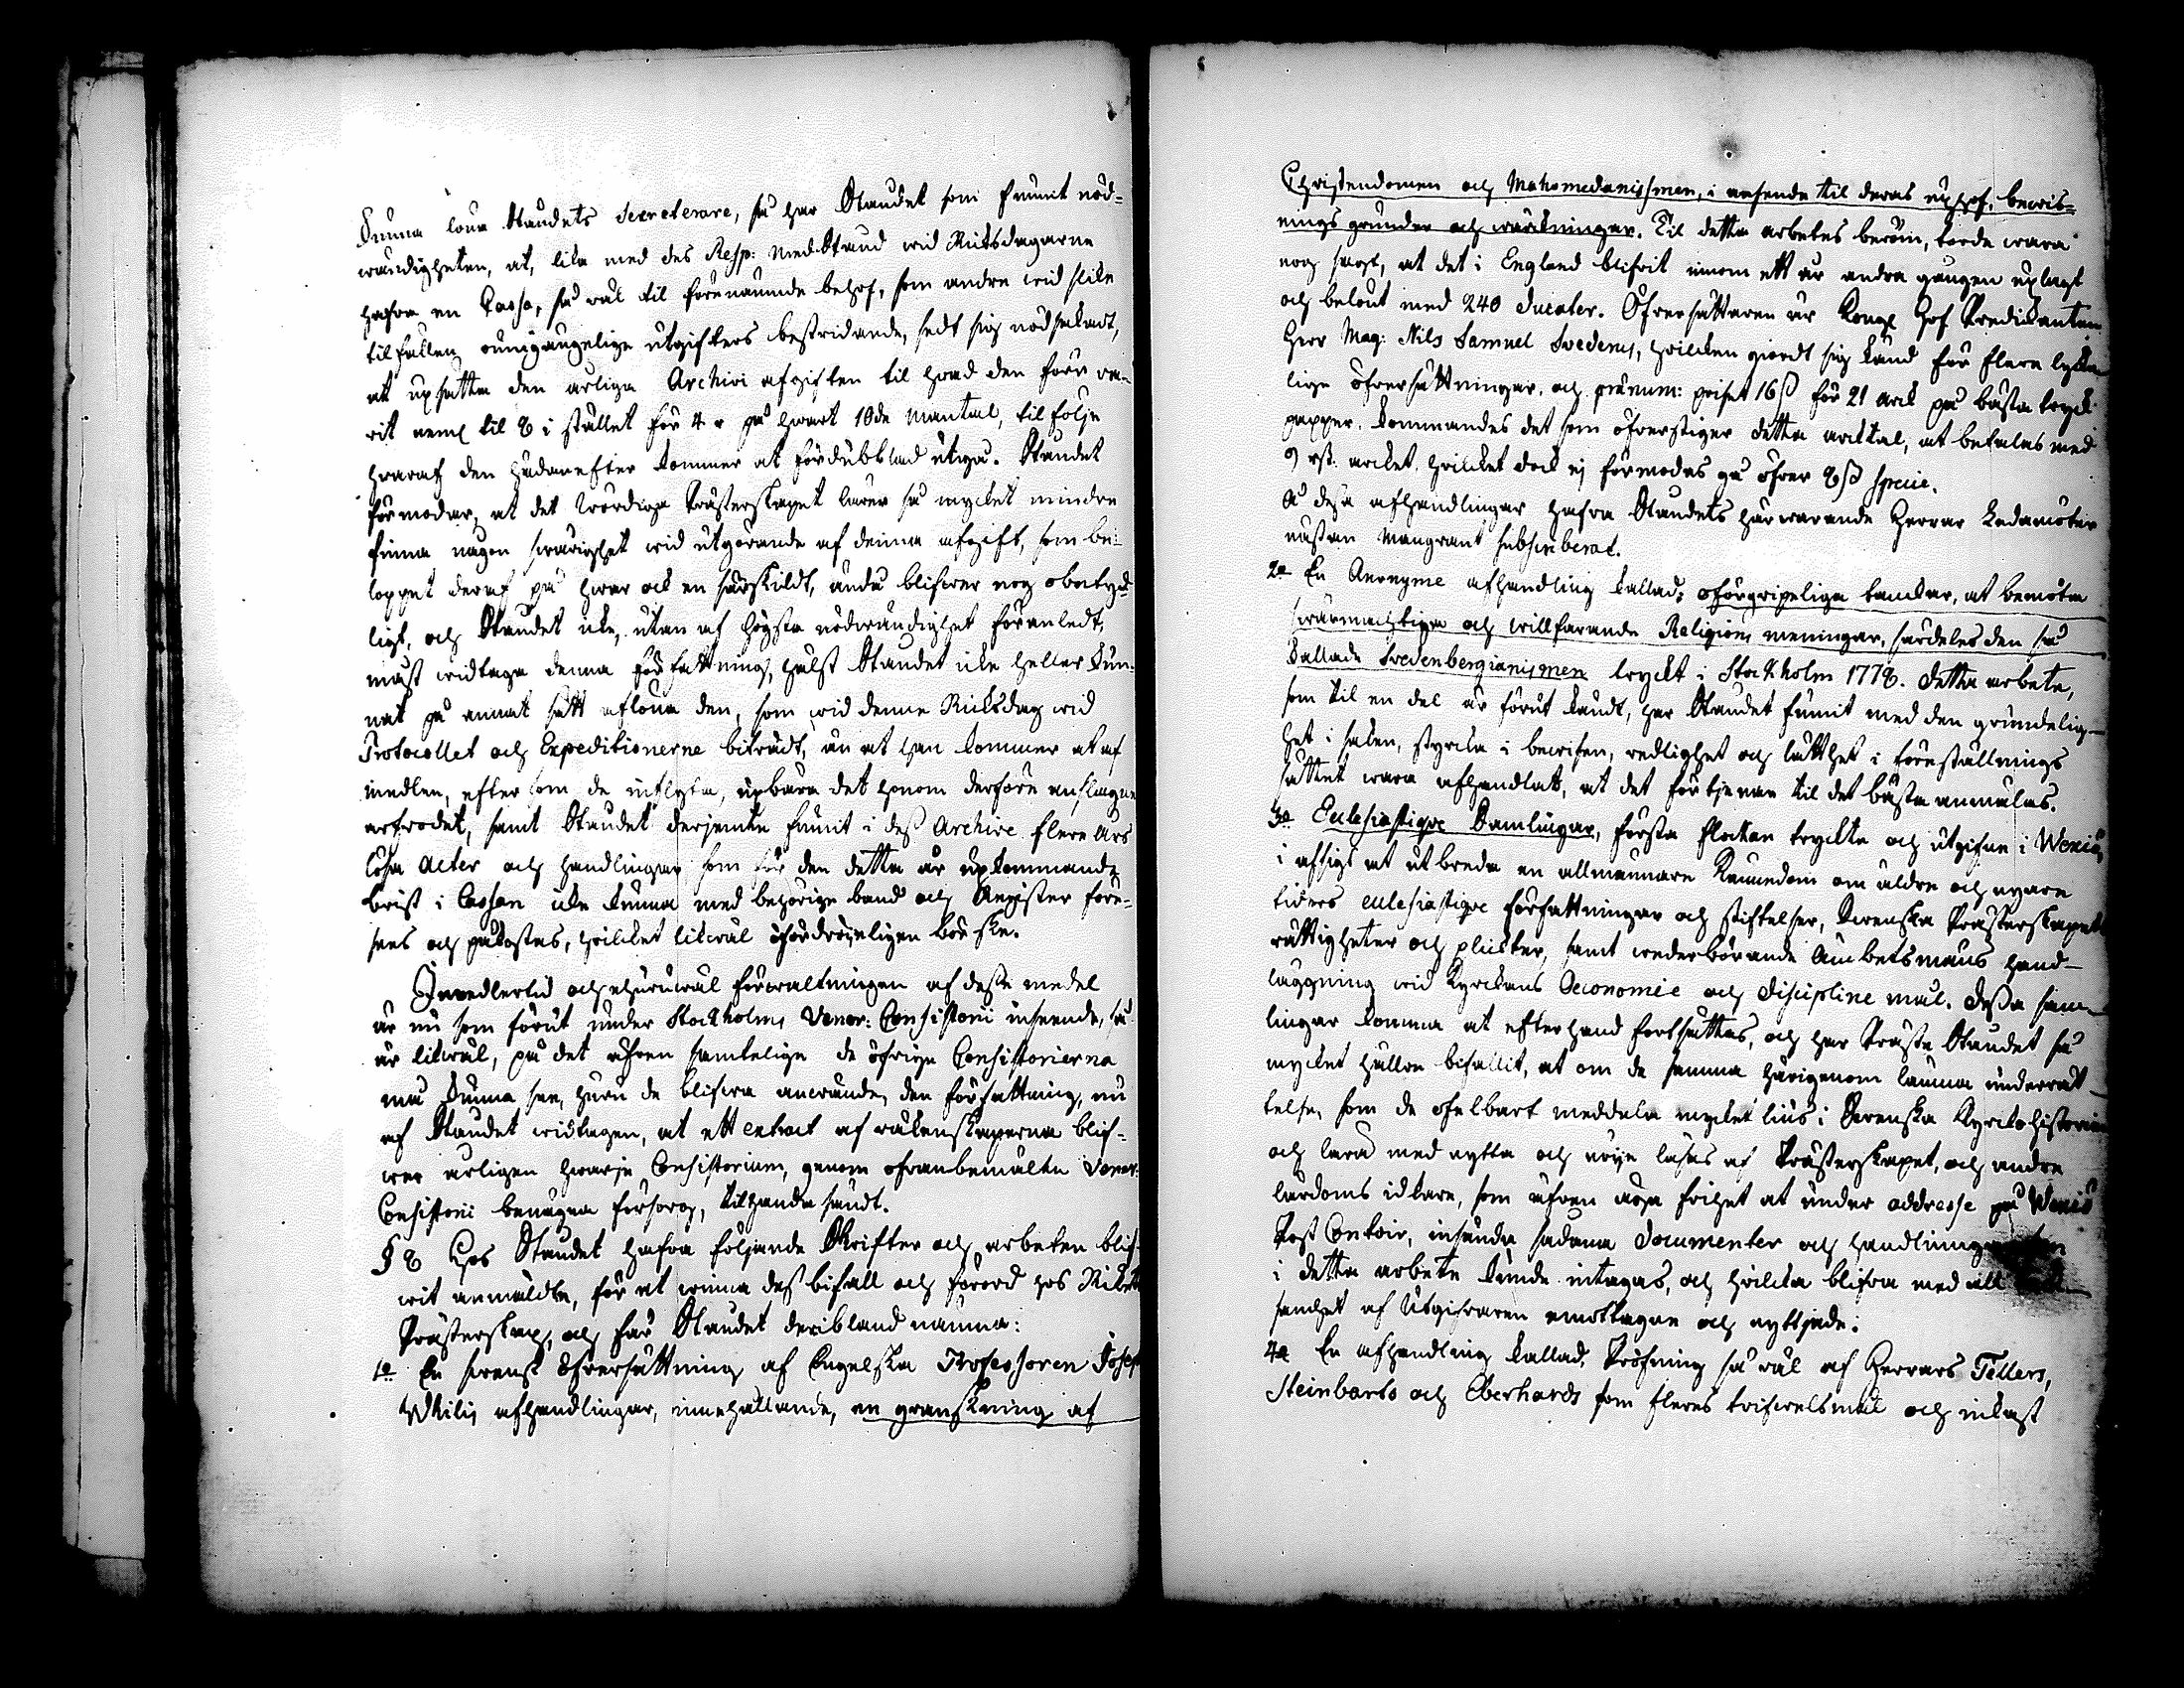 kunna löna Ståndets Secreterare, så har Ståndet som funnit nöd-
wändigheten, at, lika med des Resp: MedStånd wid Riksdagarne
hafwa en Cassa, så wäl til förenämnde behof, som andra wid slike
tilfällen oumgängelige utgifters bestridande, sedt sig nödsakadt,
at upsätta den årliga Archivi afgiften til hwad den förr wa-
rit neml til 8 i stället för 4 r på hwart 10de Mantal, til följe
hwaraf den hädanefter kommer at fördubblad utgå. Ståndet
förmodar, at det Wördiga Prästerskapet lärer så mycket mindre
finna någon swårighet wid utgörande af denna afgift, som be-
loppet deraf på hwar och en särskildt, ändå blifwer nog obetyd-
ligt, och Ståndet icke, utan af högsta nödwändighet föranledt,
måst widtaga denna författning, hälst Ståndet icke heller kun-
nat på annat sätt aflöna den, som wid denne Riksdag wid
Protocollet och Expeditionerne biträdt, än at han kommer at af
medlen, efter som de inflyta, upbära det honom derföre anslagne
arfvodet, samt Ståndet derjemte funnit i dess Archive flere års
lösa Acter och handlingar som för den detta år upkommande
brist i Cassan icke kunna med behörige band och Register före-
sees och påkostas, hvilket likwäl ofördröjeligen bör ske.
Imedlertid och ehuruwäl förwaltningen af desse medel
är nu som förut under Stockholms Vener: Consistorii inseende, så
är likwäl, på det äfwen samtelige de öfrige Consistorierna
må kunna see, huru de blifwa anwände, den författning, nu
af Ståndet widtagen, at ett extract af räkenskaperna blif-
wer årligen hwarje Consistorium, genom ofwanbemälte Vener:
Consistorii benägna försorg, tilhanda sändt.
§ 8 Hos Ståndet hafva följande Skrifter och arbeten blif-
wit anmälde, för at winna dess bifall och förord hos Rikets
Prästerskap, och får Ståndet deribland nämna:
1o En swensk öfwersättning af Engelska Professoren Joseph
Whites afhandlingar, innehållande, en granskning af
Christendomen och Mahomedanismen, i anseende til deras uphof, bewis-
nings grunder och wärkningar. Til detta arbetes beröm, torde wara
nog sagt, at det i England blifvit innom ett år andra gången uplagt
och belönt med 240 Ducater. Öfwersättaren är Kongl Hof Predikanten
Herr Mag: Nils Samuel Swederus, hvilken giordt sig känd för flere lycke-
lige öfwersättningar, och pränum: priset 16 ß för 21 ark på bästa tryck-
papper, kommandes det som öfwerstiger detta arktal, at betalas med
9 rst. arket, hvilket dock ej förmodas gå öfwer 8 ß specie.
Å dessa afhandlingar hafwa Ståndets härwarande Herrar Ledamöter
nästan mangrant subscriberat.
2o En Anonyme afhandling kallad: oförgripeliga tankar, at bemöta
swärmachtiga och willfarande Religions meningar, särdeles den så
kallade Svedenbergianismen tryckt i Stockholm 1778. Detta arbete,
som til en del är förut kändt, har Ståndet funnit med den grundelig-
het i saken, styrka i bewisen, redlighet och lätthet i föreställnings
sättet wara afhandlat, at det förtjenar til det bästa anmälas.
3o Ecclesiastique Samlingar, första flocken tryckta och utgifne i Wexiö,
i afsigt at utbreda en allmännare Kännedom om äldre och nyare
tiders ecclesiastique författningar och stiftelser, Swenska Prästerskapets
rättigheter och plickter, samt wederbörande Ämbetsmäns hand-
läggning wid Kyrckans Oeconomie och Discipline mål. Dessa sam-
lingar komma at efterhand fortsättas, och har Präste Ståndet så
mycket hällre bifallit, at om de samma härigenom lämna underrät-
telse, som de ofelbart meddela mycket lius i Swenska Kyrckohistorien
och lära med nytta och nöje läsas af Prästerskapet, och andre
lärdoms idkare, som äfwen äga frihet at under addresse på Wexiö
Post Contoir, insända sådana Documenter och handlingar som
i detta arbete kunde intagas, och hvilka blifva med all
samhet af Utgifwaren emottagne och nyttjade.
4o En afhandling kallad, Pröfning så wäl af Herrars Tellers,
Steinbarts och Eberhards som fleres twifwelsmål och inkast